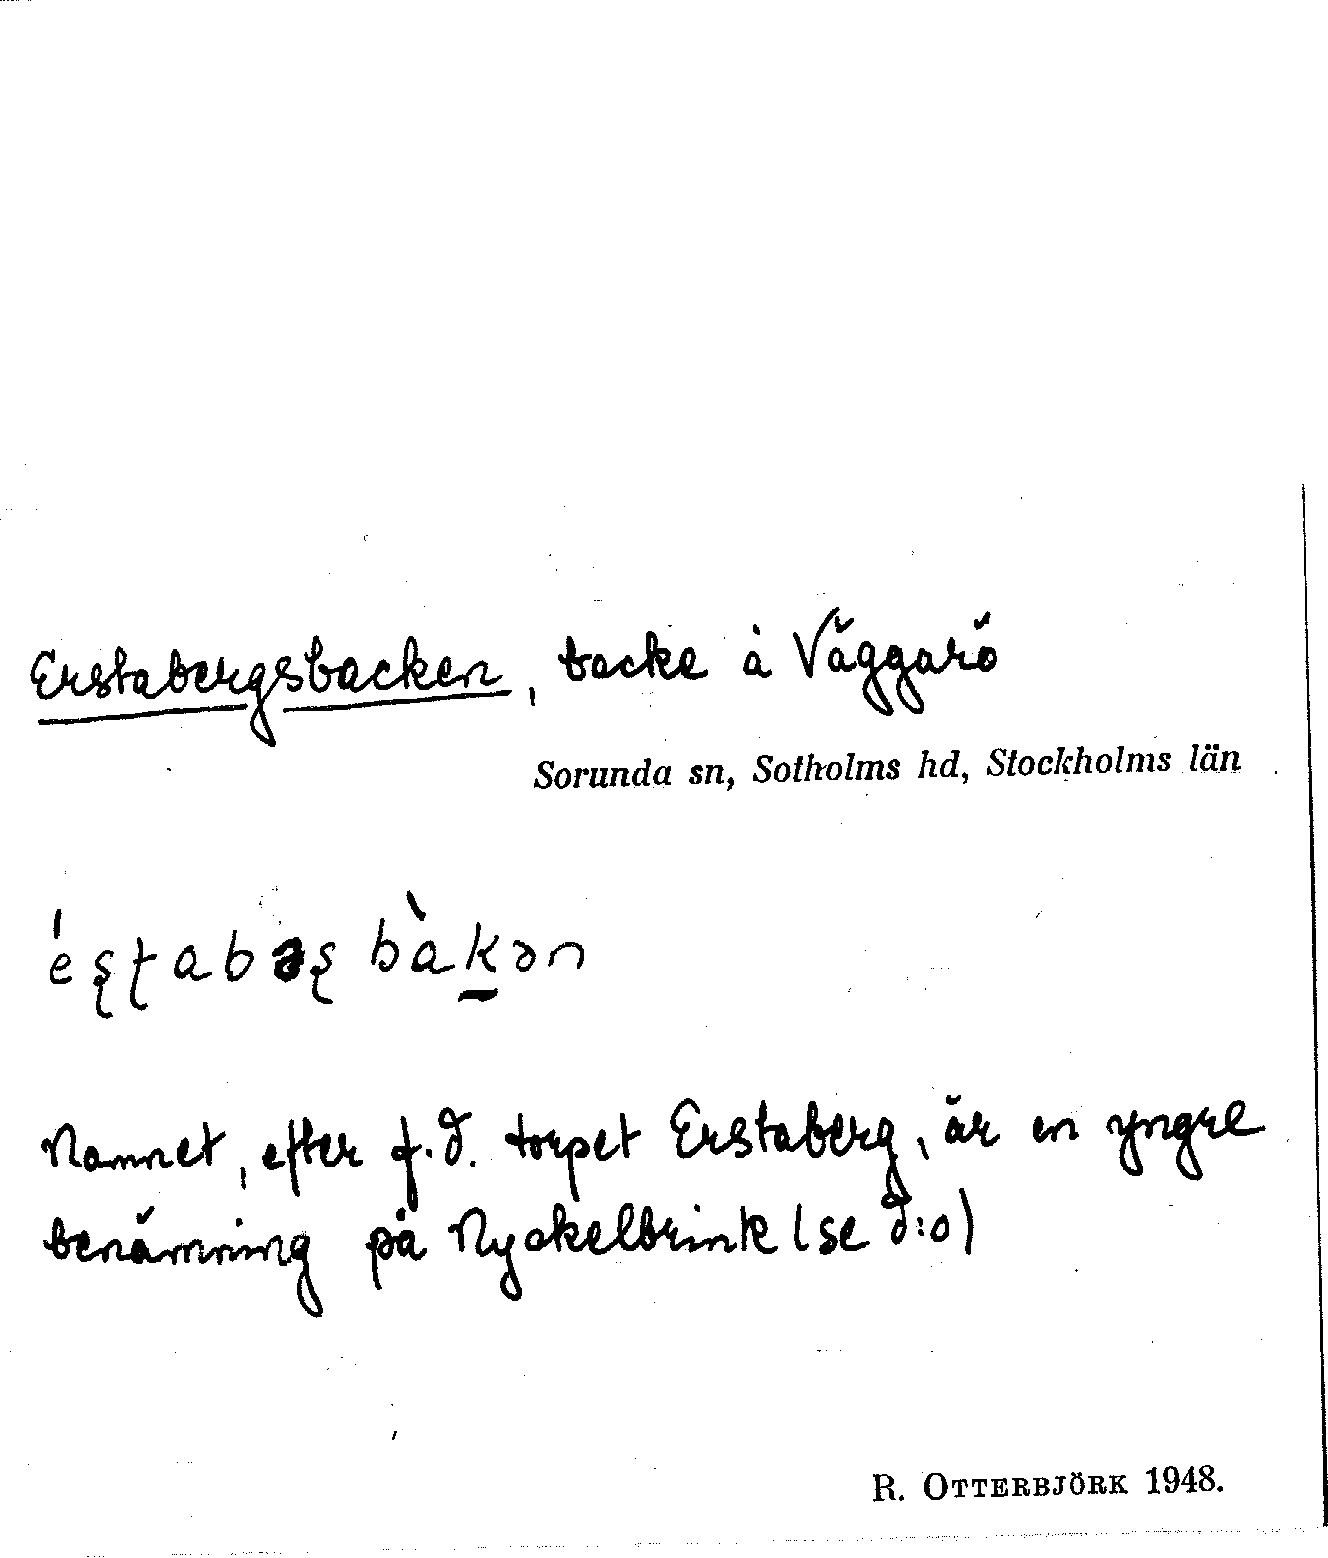 Erstabergsbacken, backe å Väggarö
Sorunda sn, Sotholms hd, Stockholms län
éʂʈabəʂbàk̲ən
Namnet, efter f.d. torpet Erstaberg, är en yngre
benämning på Nyckelbrink (se d:o)
R. OTTERBJÖRK 1948.